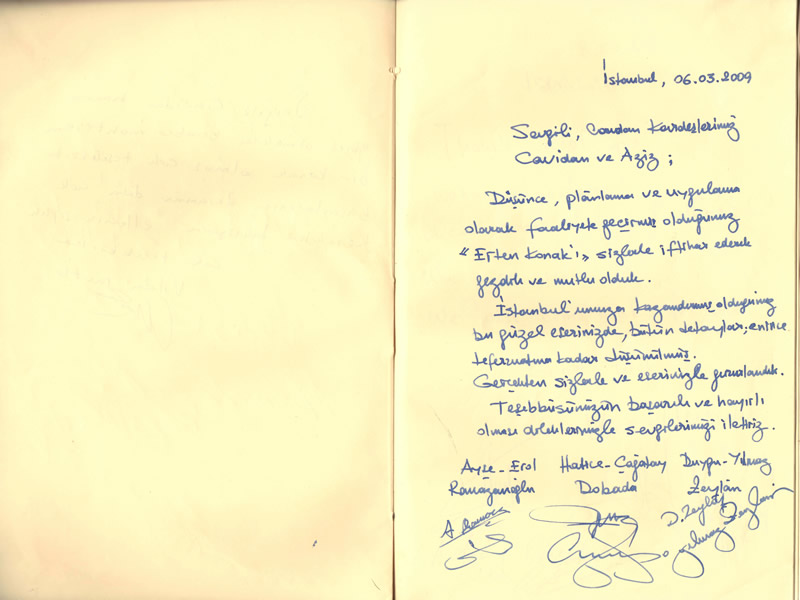 İstanbul, 06.03.2009
Sevgili, Candan Kardeşlerimiz
Cavidan ve Aziz;
Düşünce, plânlama ve uygulama
olarak faaliyete geçirmiş olduğunuz
"Erten Konak'ı" sizlerle iftihar ederek
gezdik ve mutlu olduk.
İstanbul'umuza kazandırmış olduğunuz
bu güzel eserinizde, bütün detaylar, en ince
teferruatına kadar düşünülmüş.
Gerçekten sizlerle ve eserinizle gururlandık.
Teşebbüsünüzün başarılı ve hayırlı
olması dileklerimizle sevgilerimizi iletiriz.
Ayşe-Erol Hatice-Çağatay Duygu-Yılmaz
Ramazanoğlu Dobada Zeylân
D. Zeylân
Yılmaz Zeylân